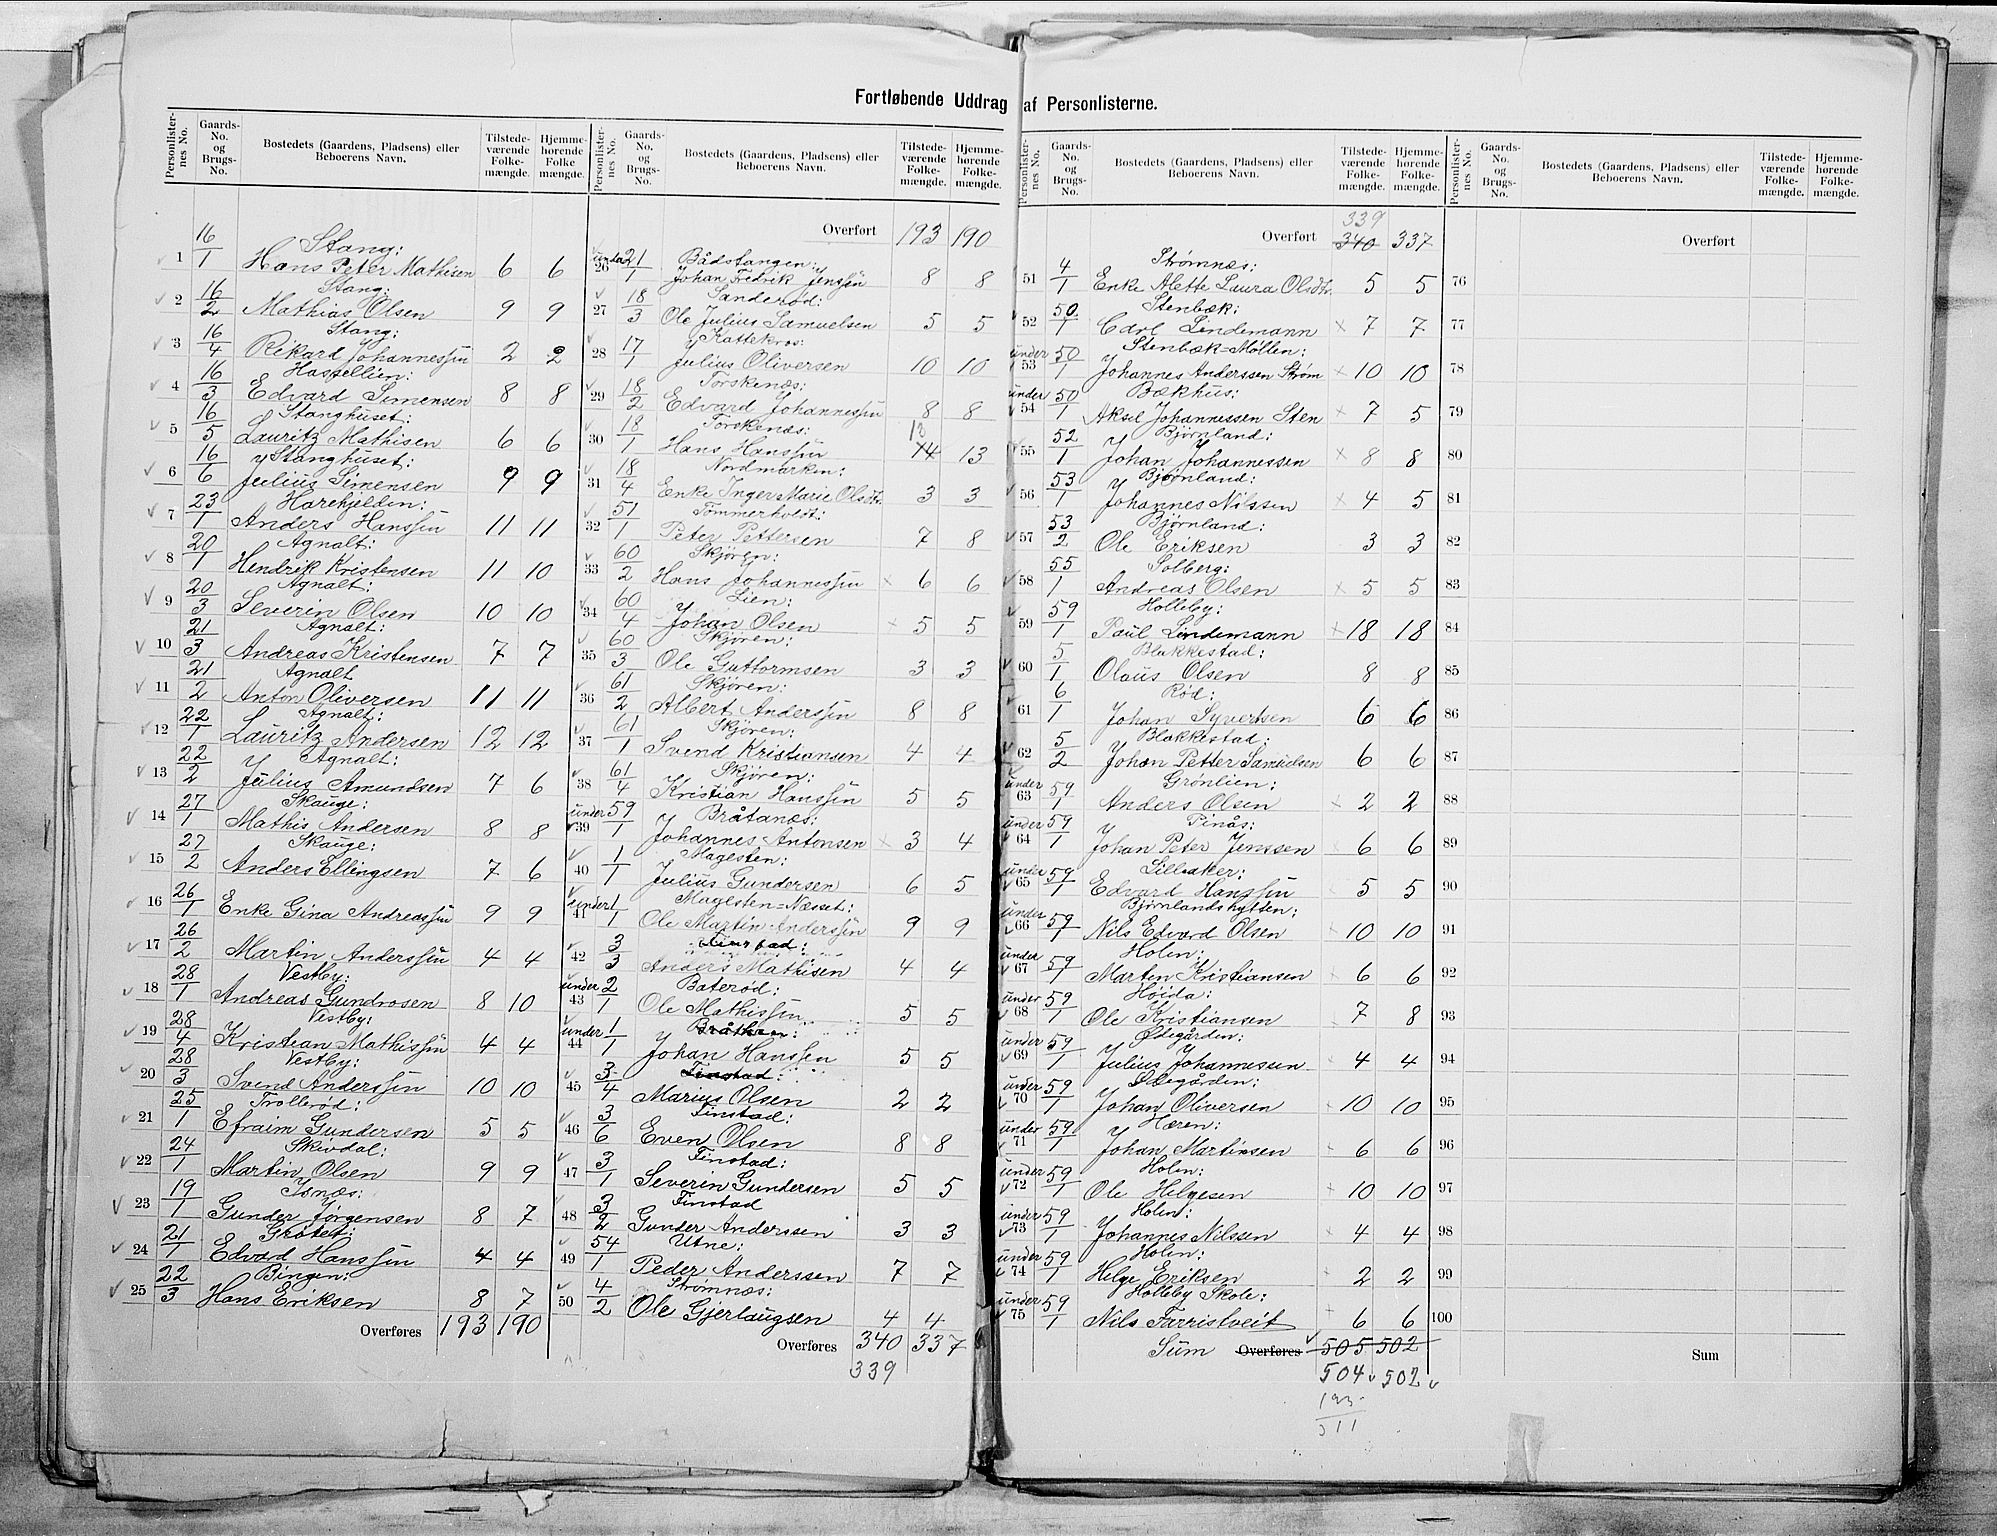 Fortløbende Uddrag af Personlisterne.
Personlisternes No. | Gaards-No. og Brugs-No. | Bostedets (Gaardens, Pladsens) eller Beboerens Navn. | Tilstedeværende Folkemængde. | Hjemmehørende Folkemængde.
1 16/1 Stang:
Hans Peter Mathisen 6 6
2 16/2 Stang:
Mathias Olsen 9 9
3 16/4 Stang:
Rikard Johannessen 2 2
4 16/3 Hassellien:
Edvard Simensen 8 8
5 16/5 Stanghuset:
Lauritz Mathisen 6 6
6 16/6 Stanghuset:
Julius Simensen 9 9
7 23/1 Harekjelden:
Anders Hanssen 11 11
8 20/1 Agnalt:
Hendrik Kristensen 11 10
9 20/3 Agnalt:
Severin Olsen 10 10
10 21/3 Agnalt:
Andreas Kristensen 7 7
11 21/2 Agnalt
Anton Oliversen 11 11
12 22/1 Agnalt:
Lauritz Andersen 12 12
13 22/2 Agnalt:
Julius Amundsen 7 6
14 27/1 Skauge:
Mathis Andersen 8 8
15 27/2 Skauge:
Anders Ellingsen 7 6
16 26/1 Enke Gina Andreassen 9 9
17 26/2 Martin Anderssen 4 4
18 28/1 Vestby:
Andreas Gundrosen 8 10
19 28/4 Vestby:
Kristian Mathissen 4 4
20 28/3 Vestby:
Svend Anderssen 10 10
21 25/1 Trollerød:
Efraim Gundersen 5 5
22 24/1 Skivdal:
Martin Olsen 9 9
23 19/1 Isnæs:
Gunder Jørgensen 8 7
24 21/1 Gråtet:
Edvard Hanssen 4 4
25 22/3 Bingen:
Hans Eriksen 8 7
Overføres 193 190
Personlisternes No. | Gaards-No. og Brugs-No. | Bostedets (Gaardens, Pladsens) eller Beboerens Navn. | Tilstedeværende Folkemængde. | Hjemmehørende Folkemængde.
Overført 193 190
under 26 21/1 Bådstangen:
Johan Fredrik Jenssen 8 8
27 18/3 Sanderød:
Ole Julius Samuelsen 5 5
28 17/1 Kattekros:
Julius Oliversen 10 10
29 18/2 Torskenæs:
Edvard Johannessen 8 8
30 18/1 Torskenæs: 13
Hans Hanssen 14 13
31 18/4 Nordmarken:
Enke Inger Marie Olsdtr. 3 3
32 51/1 Tommerholdt:
Peter Pettersen 7 8
33 60/2 Skjøren:
Hans Johannessen × 6 6
34 60/4 Lien:
Johan Olsen × 5 5
35 60/3 Skjøren:
Ole Guttormsen 3 3
36 61/2 Skjøren:
Albert Anderssen 8 8
37 61/1 Skjøren:
Svend Kristiansen 4 4
38 61/4 Skjøren:
Kristian Hanssen 5 5
under 39 59/1 Bråtanæs:
Johannes Antonsen × 3 4
40 1/1 Magesten:
Julius Gundersen 6 5
under 41 1/1 Magesten-Næsset:
Ole Martin Anderssen 9 9
42 3/3
Anders Mathisen 4 4
under 43 2/1 Baterød:
Ole Mathissen 5 5
under 44 1/1 Bråthen:
Johan Hanssen 5 5
45 3/4 Finstad:
Marius Olsen 2 2
46 3/6 Finstad:
Even Olsen 8 8
47 3/1 Finstad:
Severin Gundersen 5 5
48 3/2 Finstad
Gunder Anderssen 3 3
49 54/1 Utne:
Peder Anderssen 7 7
50 4/2 Strømnæs:
Ole Gjerlaugsen 4 4
Overføres 340 337
339
Personlisternes No. | Gaards-No. og Brugs-No. | Bostedets (Gaardens, Pladsens) eller Beboerens Navn. | Tilstedeværende Folkemængde. | Hjemmehørende Folkemængde.
339
Overført 340 337
51 4/1 Strømnæs:
Enke Alette Laura Olsdtr. 5 5
52 50/1 Stenbæk:
Carl Lindemann × 7 7
under 53 50/1 Stenbæk-Møllen:
Johannes Anderssen Strøm × 10 10
under 54 50/1 Bækhus:
Aksel Johannessen Sten × 7 5
55 52/1 Bjørnland:
Johan Johannessen × 8 8
56 53/1 Bjørnland:
Johannes Nilssen × 4 5
57 53/2 Bjørnland:
Ole Eriksen 3 3
58 55/1 Solberg:
Andreas Olsen × 5 5
59 59/1 Holleby:
Paul Lindemann × 18 18
60 5/1 Blakkestad:
Olaus Olsen 8 8
61 6/1 Rød:
Johan Syvertsen 6 6
62 5/2 Blakkestad:
Johan Petter Samuelsen 6 6
under 63 59/1 Grønlien:
Anders Olsen × 2 2
under 64 59/1 Pinås:
Johan Peter Jenssen × 6 6
under 65 59/1 Lilleaker:
Edvard Hanssen × 5 5
under 66 59/1 Bjørnlandshytten:
Nils Edvard Olsen × 10 10
under 67 59/1 Holen:
Martin Kristiansen × 6 6
under 68 59/1 Høida:
Ole Kristiansen × 7 8
under 69 59/1 Ødegården:
Julius Johannessen × 4 4
under 70 59/1 Ødegården:
Johan Oliversen × 10 10
under 71 59/1 Hæren:
Johan Martinsen × 6 6
under 72 59/1 Holen:
Ole Helgesen × 10 10
under 73 59/1 Holen:
Johannes Nilssen × 4 4
under 74 59/1 Holen:
Helge Eriksen × 2 2
under 75 59/1 Holleby Skole:
Nils Farristveit × 6 6
Sum Overføres 505 502
504 502
193
311
Personlisternes No. | Gaards-No. og Brugs-No. | Bostedets (Gaardens, Pladsens) eller Beboerens Navn. | Tilstedeværende Folkemængde. | Hjemmehørende Folkemængde.
Overført
76
77
78
79
80
81
82
83
84
85
86
87
88
89
90
91
92
93
94
95
96
97
98
99
100
Sum